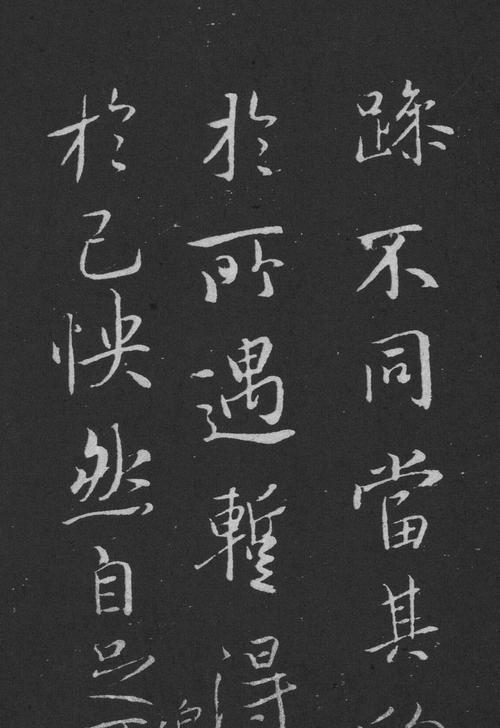 躁不同當其
於所遇暫得
於己怏然自足